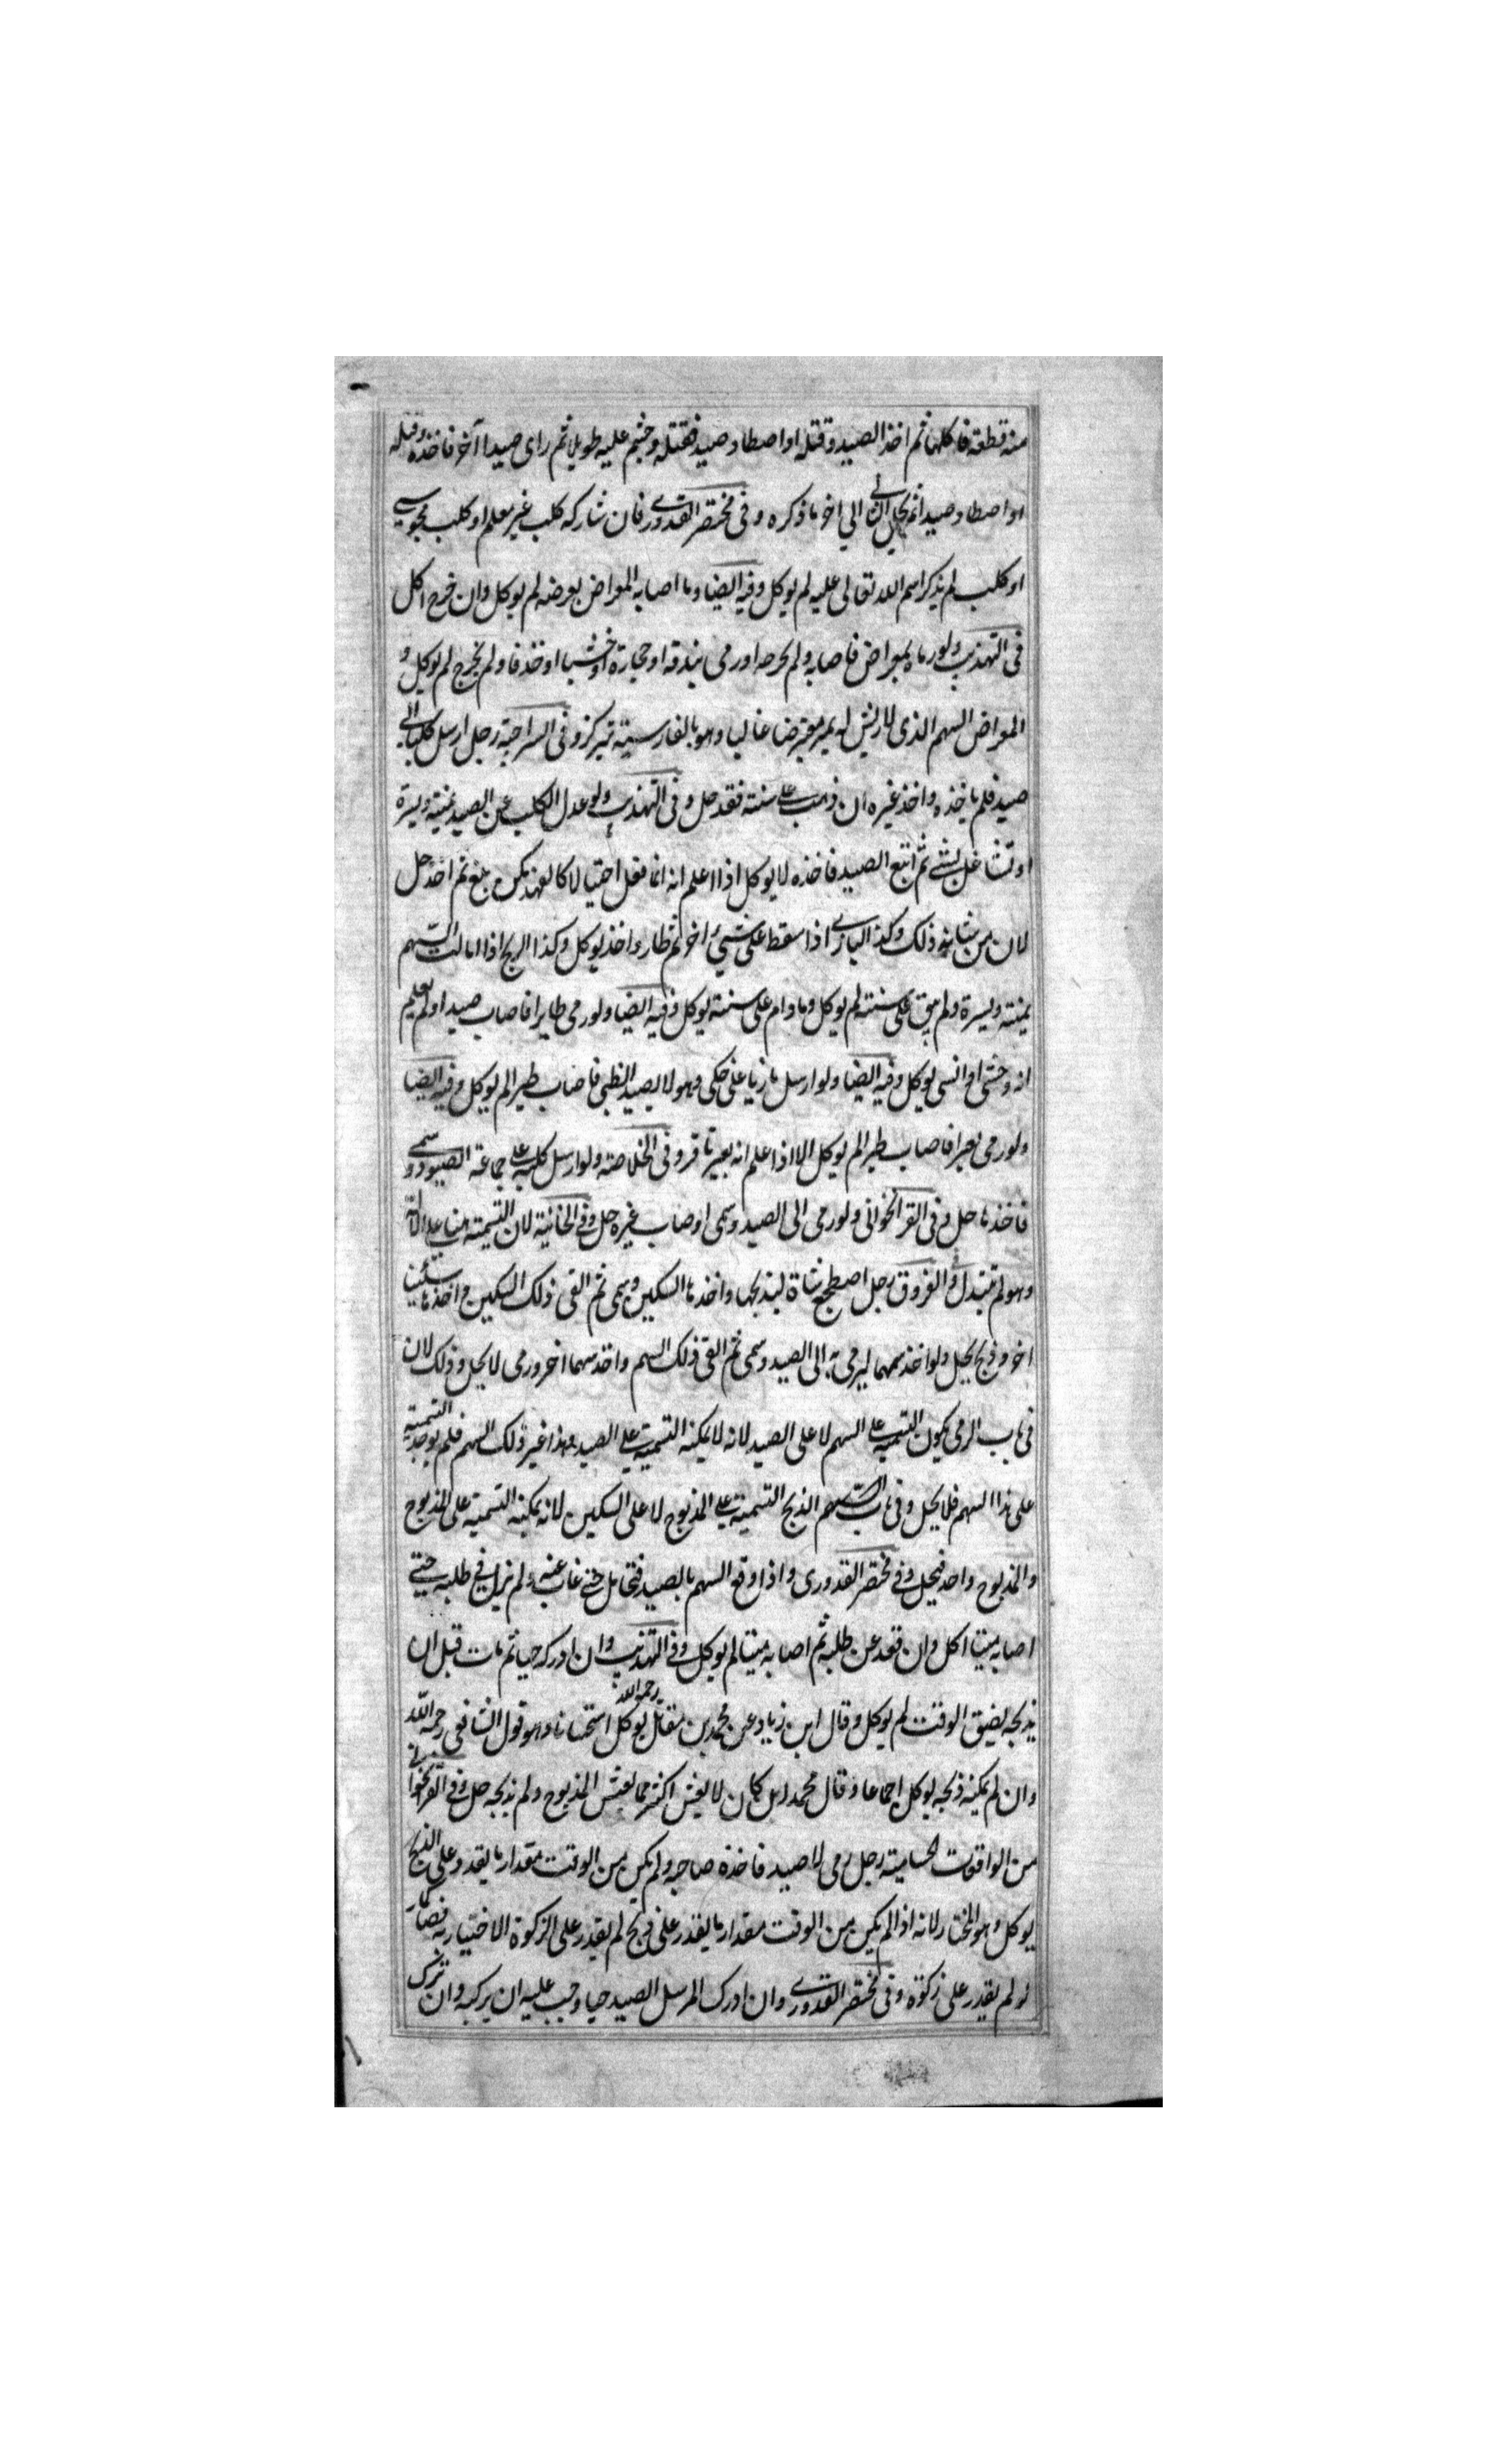 منه قطعة فاكلها ثم اخذ الصيد وقتله او اصطاد صيد فقتله وجثم عليه طويلا ثم راى صيدا آخر فاخذه وقتله
او اصطاد صيدا ثم يحل الثاني الي اخر ما ذكره و فى مختصر القدوري فان شاركه كلب غير معلم او كلب مجوسي
او كلب لم يذكر اسم الله تعالى عليه لم يوكل وفيه ايضا وما اصابه المعراض بعرضه لم يوكل وان جرح اكل
فى التهذيب ولو رماه بمعراض فاصابه ولم يجرحه او رمى ببندقة او حجارة او خشبا او خذفا ولم يجرح لم يوكل و
المعراض السهم الذى لا ريش له يمر معترضا غالبا وهو بالفارسية تير كز و فى السراجية رجل ارسل كلبا الى
صيد فلم ياخذه واخذ غيره ان ذهب على سننه فقد حل و فى التهذيب ولو عدل الكلب عن الصيد يمنة ويسرة
او تشاغل بشئ ثم اتبع الصيد فاخذه لا يوكل اذا اعلم انه انما فعل احتيالا كالفهد يكمن ثم اخذ حل
لان من شانه ذلك وكذا البازي اذا سقط على شيئ اخر ثم طار واخذ يوكل وكذا الريح اذا امالت السهم
يمنة ويسرة ولم يبق على سننه لم يوكل وما دام على سننه يوكل وفيه ايضا ولو رمى طايرا فاصاب صيدا ولم يعلم
انه وحشى او انسى يوكل وفيه ايضا ولو ارسل بازيا على ظبى وهو لا يصيد الظبى فاصاب طيرا لم يوكل وفيه ايضا
ولو رمى بعيرا فاصاب طيرا لم يوكل الا اذا علم انه بعير نافر و فى الخلاصة ولو ارسل كلبه على جماعة الصيود وسمى
فاخذها حل و فى القراخوانى ولو رمى الى الصيد وسمى اوصاب غيره حل و فى الخانية لان التسمية هنا على الالة
وهو لم تتبدل و فى الفروق رجل اضطجع شاة ليذبحها واخذها السكين وسمى ثم القى ذلك السكين واخذ سكينا
اخر وذبح يحل ولو اخذ سهما ليرمى به الى الصيد وسمى ثم القى ذلك السهم واخذ سهما اخر ورمى لا يحل وذلك لان
فى باب الرمى يكون التسمية على السهم لا على الصيد لانه لا يمكنه التسمية على الصيد وهذا غير ذلك السهم فلم يوجد التسمية
على هذا السهم فلا يحل و فى باب الذبح التسمية على المذبوح لا على السكين لانه يمكنه التسمية على المذبوح
والمذبوح واحد فيحل و فى مختصر القدورى واذا وقع السهم بالصيد فتحامل حتى غاب عنه ولم يزل في طلبه حتى
اصابه ميتا اكل وان قعد عن طلبه ثم اصابه ميتا لم يوكل و فى التهذيب وان ادركه حيا ثم مات قبل ان
يذبحه لضيق الوقت لم يوكل وقال ابن زياد عن محمد بن مقاتل رحمه الله يوكل استحسانا وهو قول الشافعى رحمه الله
وان لم يمكنه ذبحه يوكل اجماعا وقال محمد ان كان لا يعيش اكثر مما يعيش المذبوح ولم يذبحه حل و فى القراخوانى
من الواقعات الحسامية رجل رمى صيد فاخذه صاحبه ولم يكن من الوقت مقدار ما يقدر على الذبح
يوكل وهو المختار لانه اذا لم يكن من الوقت مقدار ما يقدر على ذبح لم يقدر على الزكوة الاختيارية فصار كما
لو لم يقدر على زكوة و فى مختصر القدوري وان ادرك المرسل الصيد حيا وجب عليه ان يزكيه وان ترك